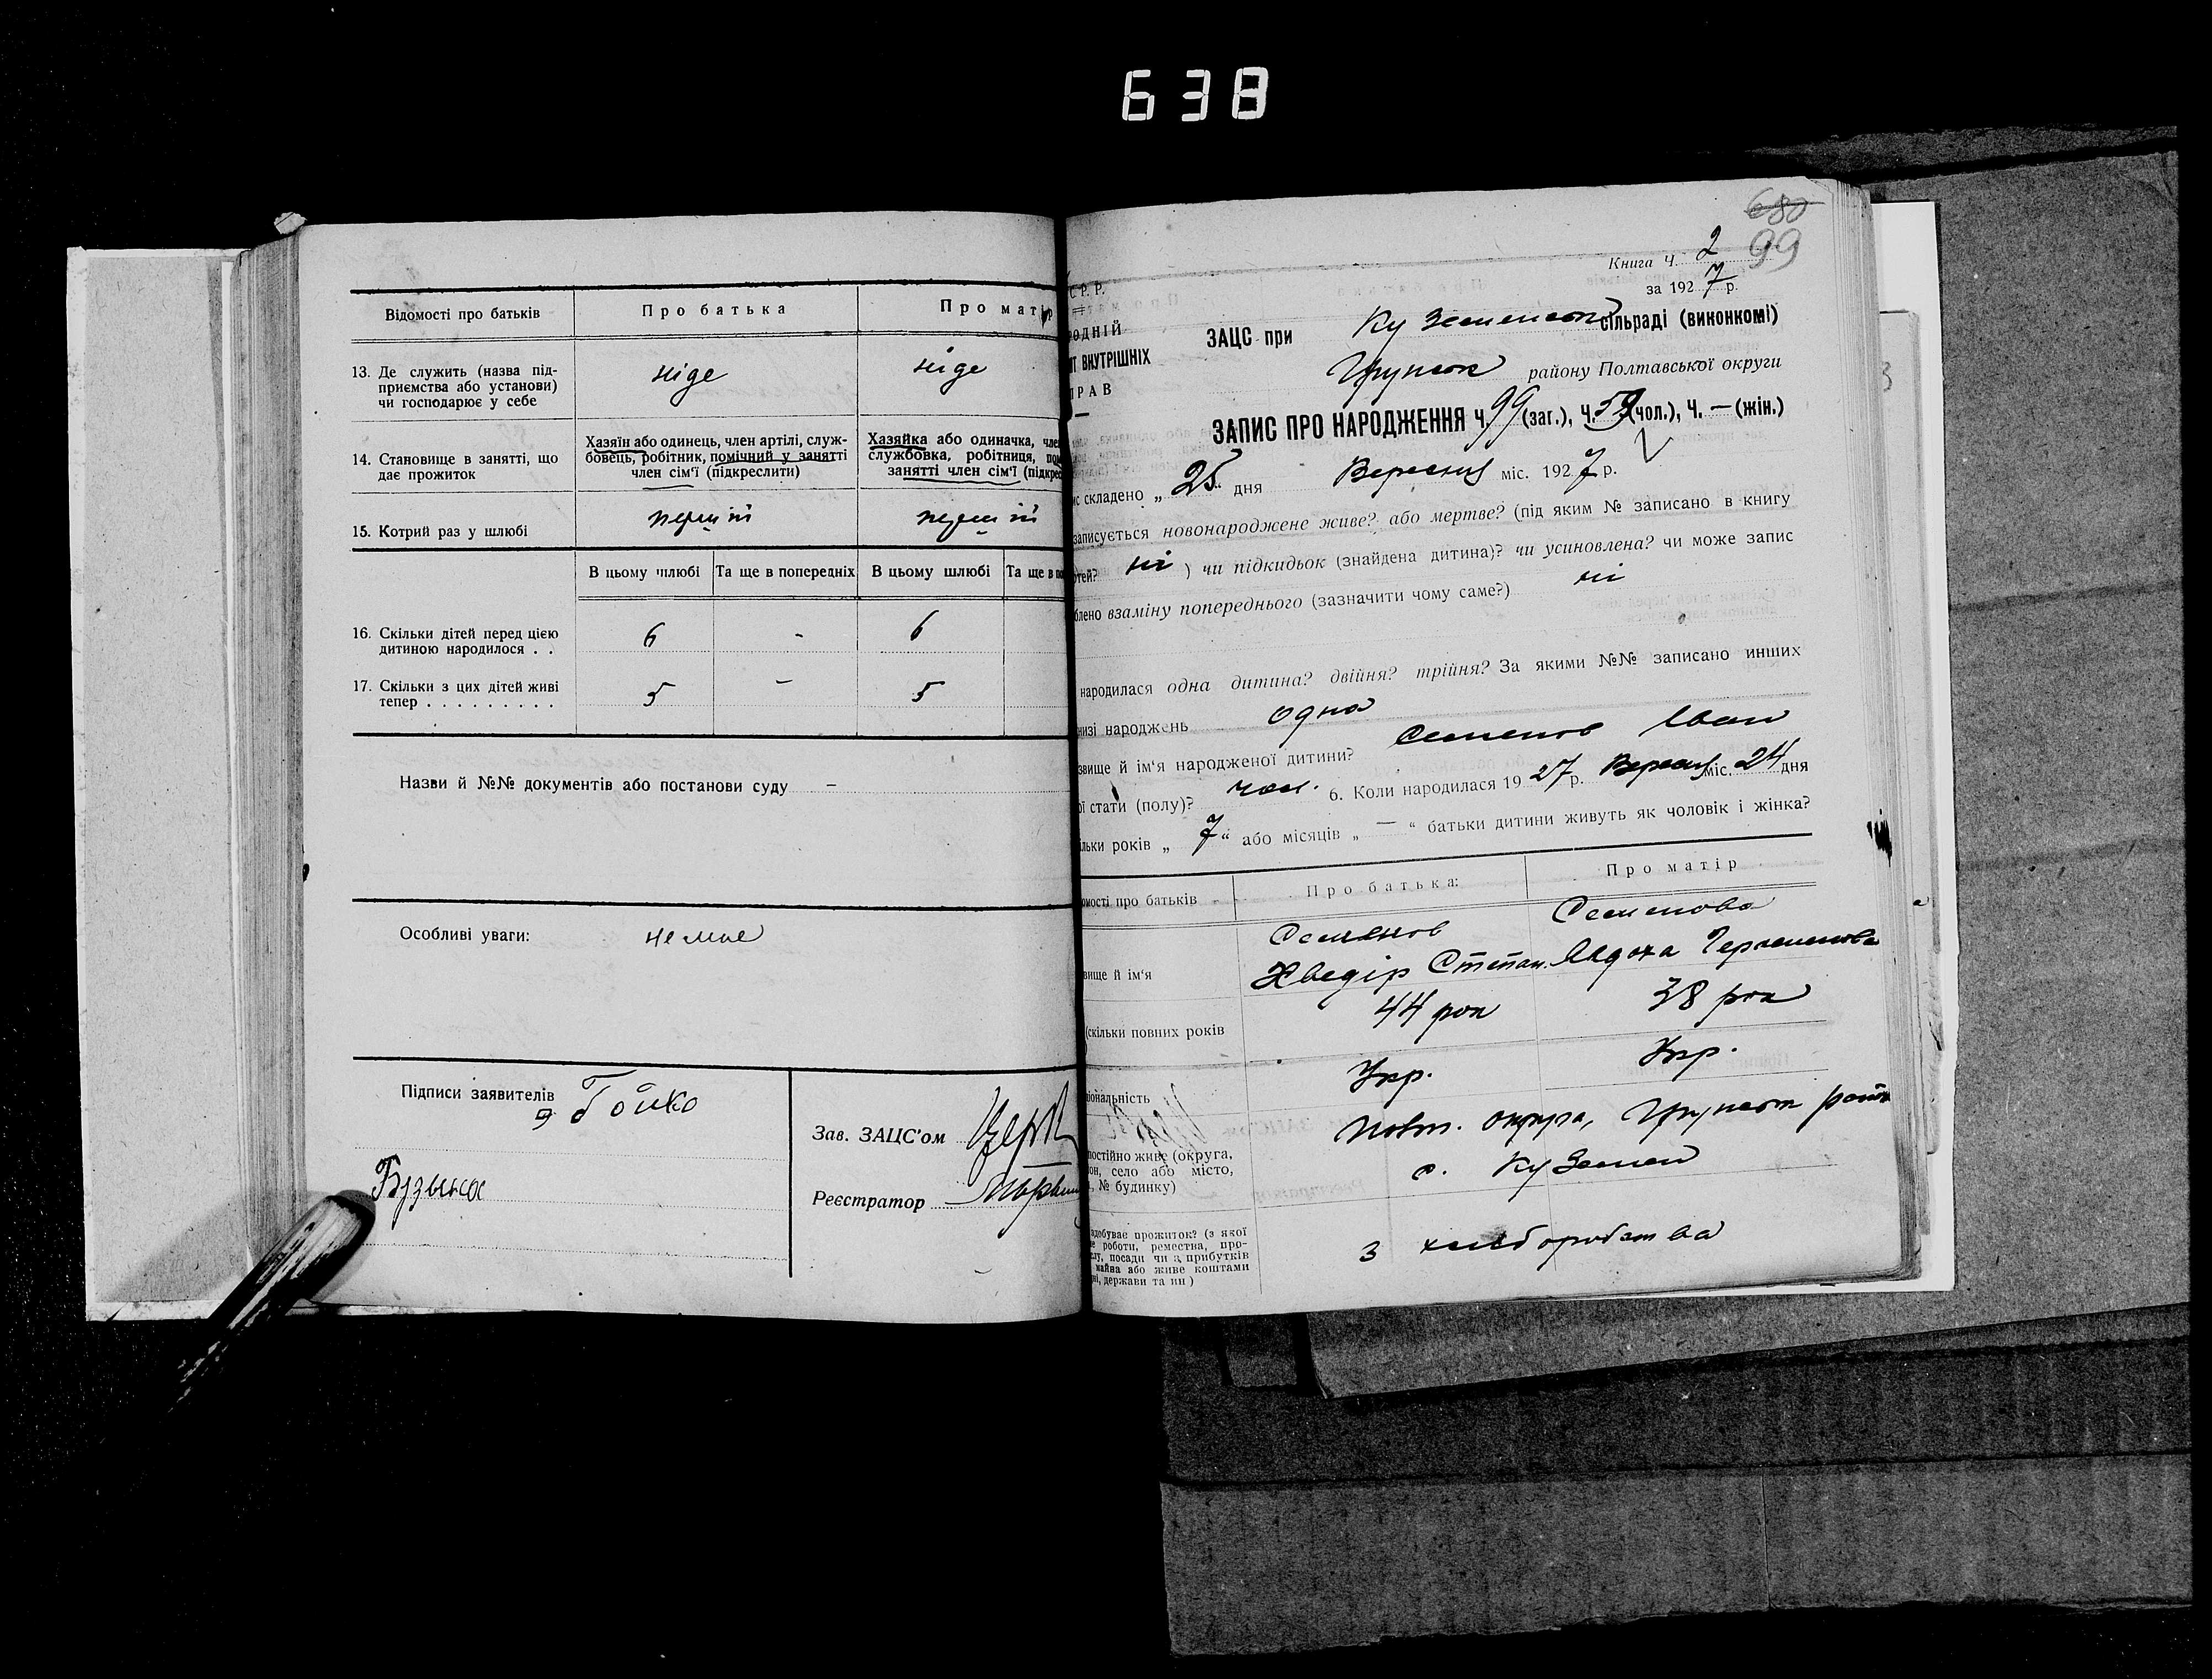 638
Відомості про батьків
Про батька
Про матір
13. Де служить (назва під-
приємства або установи)
чи господарює у себе
ніде
ніде
14. Становище в занятті, що
дає прожиток
Хазяїн або одинець, член артілі, служ-
бовець, робітник, помічний у занятті
член сім'ї (підкреслити)
Хазяйка або одиначка, чле
службовка, робітниця, пом
занятті член сім'ї (підкрес
15. Котрий раз у шлюбі
перший
перший
В цьому шлюбі
Та ще в попередніх
В цьому шлюбі
Та ще в по
16. Скільки дітей перед цією
дитиною народилося . .
6
-
6
17. Скільки з цих дітей живі
тепер . . . . . . . . .
5
-
5
Назви й №№ документів або постанови суду –
Особливі уваги:
немає
Підписи заявителів
Бойко
Бузына
Зав. ЗАЦС'ом
Реєстратор
680
99
Книга Ч. 2
за 1927 р.
С Р. Р.
РОДНІЙ
НТ ВНУТРІШНІХ
ПРАВ
ЗАЦС при Куземенськ сільраді (виконкомі)
Грунськ району Полтавської округи
ЗАПИС ПРО НАРОДЖЕННЯ Ч. 99 (заг.), Ч. 59 (чол.), Ч. — (жін.)
ис складено „ 25 “ дня Вересня міс. 1927 р.
записується новонароджене живе? або мертве? (під яким № записано в книгу
ртей? ні ) чи підкидьок (знайдена дитина)? чи усиновлена? чи може запис
блено взаміну попереднього (зазначити чому саме?) ні
народилася одна дитина? двійня? трійня? За якими №№ записано инших
низі народжень одна
звище й ім'я народженої дитини? Семенов Іван
ої стати (полу)? чол. 6. Коли народилася 1927 р. Вересня міс. 24 дня
ільки років „ 7 “ або місяців „ — “ батьки дитини живуть як чоловік і жінка?
омості про батьків
Про батька:
Про матір
вище й ім'я
Семенов
Хведір Степан.
Семенова
Авдоха
(скільки повних років
44 рок
38 рок
іональність
Укр.
Укр.
постійно живе (округа,
он, село або місто,
, № будинку)
Полт. округа, Грунськ район
с. Куземен
здобуває прожиток? (з якої
е роботи, ремества, про-
слу, посади чи з прибутків
майна або живе коштами
ні, держави та ин)
з хліборобства